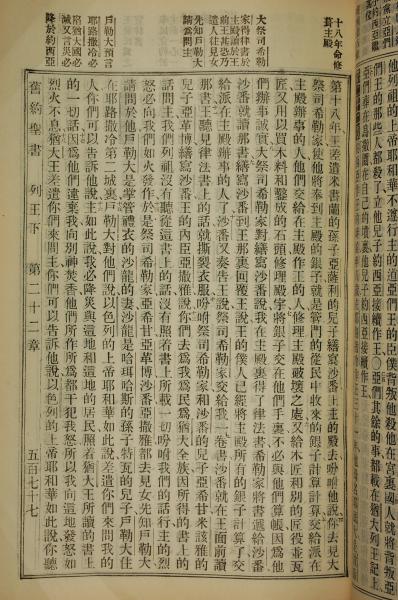 他列祖的上帝耶和華不遵行主的道亞們王的臣僕背叛他殺他在宮裏國人就將背叛亞
十八年命修
葺主殿
大祭司希勒
家得律書於
主殿讀於王
前王甚恐乃
遣人往見女
先知戶勒大
請為問主
戶勒大預言
耶路撒冷必
陷猶大國必
滅又言災必
降於約西亞
第十八年王差遣米書蘭的孫子亞薩利的兒子繕寫沙番上主的殿去吩咐他說你去見大
祭司希勒家使他將奉到主殿的銀子就是管門的從民中收來的銀子計算計算交給派在
主殿辦事的人他們交給在主殿作工的人修理主殿破壞之處又給木匠和別的匠役並瓦
匠又用以買木料和鑿成的石頭修理殿宇將銀子交在他們手裏不必與他們算帳因為他
們辦事誠實大祭司希勒家對繕寫沙番說我在主殿裏得了律法書希勒家將書遞給沙番
沙番就讀那書繕寫沙番到王那裏回覆王說王的僕人已經將主殿所有的銀子計算了交
給派在主殿辦事的人了沙番又奏告王說祭司希勒家交給我一卷書沙番就在王面前讀
那書王聽見律法書上的話就撕裂衣服吩咐祭司希勒家和沙番的兒子亞希甘米該雅的
兒子亞革博繕寫沙番王的內臣亞撒雅說你們去為我為民為猶大全族因所得的書上的
話問主我們列祖沒有聽從這書上的話沒有照着書上所載一切吩咐我們的話行主的烈
怒必向我們如火發作於是祭司希勒家亞希甘亞革博沙番亞撒雅都去見女先知戶勒大
請問於他戶勒大是掌管禮衣的沙龍的妻沙龍是哈珥哈斯的孫子特瓦的兒子戶勒大住
在耶路撒冷第二城裏戶勒大對他們說以色列的上帝耶和華如此說差遣你們來問我的
人你們可以告訴他說主如此說我必降災與這地和這地的居民照着猶大王所讀的書上
的一切話因為他們違棄我向別神焚香他們所作所為都干犯我怒所以我向這地發怒如
烈火不息猶大王差遣你們來問主你們可以告訴他說以色列的上帝耶和華如此說你聽
舊約聖書 列王下 第二十二章 五百七十七